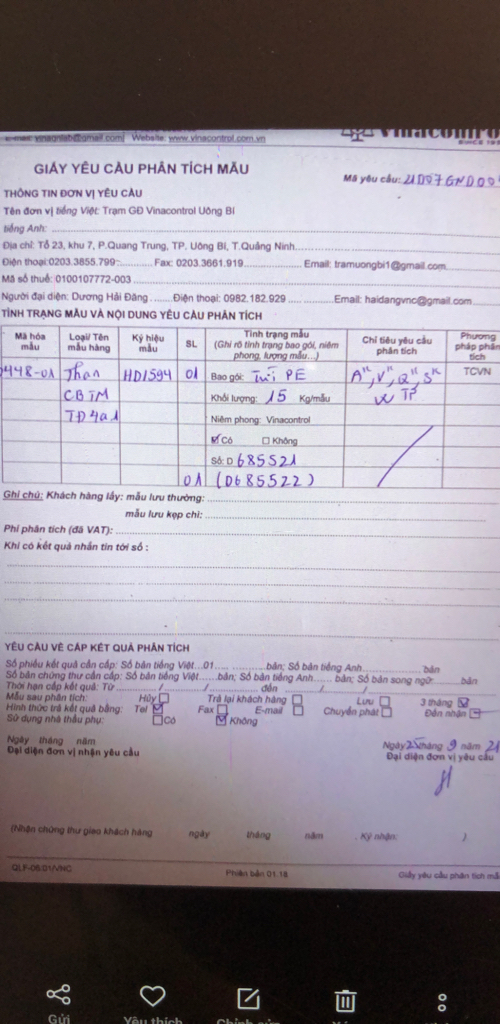 e-mail: vinagnlab@gmail.com Website: www.vinacontrol.com.vn
Vinacontrol
GIẤY YÊU CẦU PHÂN TÍCH MẪU
Mã yêu cầu:
THÔNG TIN ĐƠN VỊ YÊU CẦU
Tên đơn vị tiếng Việt: Trạm GĐ Vinacontrol Uông Bí
tiếng Anh:
Địa chỉ: Tổ 23, khu 7, P.Quang Trung, TP. Uông Bí, T.Quảng Ninh
Điện thoại:0203.3855.799 Fax: 0203.3661.919 Email: tramuongbi1@gmail.com
Mã số thuế: 0100107772-003
Người đại diện: Dương Hải Đăng Điện thoại: 0982.182.929 Email: haidangvnc@gmail.com
TÌNH TRẠNG MẪU VÀ NỘI DUNG YÊU CẦU PHÂN TÍCH
Mã hóa mẫu Loại/ Tên mẫu hàng Ký hiệu mẫu SL Tình trạng mẫu (Ghi rõ tình trạng bao gói, niêm phong, lượng mẫu...) Chỉ tiêu yêu cầu phân tích Phương pháp phân tích
448-01 Than HD1594 01 Bao gói: Túi PE TCVN
CBTM Khối lượng: 15 Kg/mẫu TP
TD4a1 Niêm phong: Vinacontrol
Có Không
Số: D 685521
01 (D685522)
Ghi chú: Khách hàng lấy: mẫu lưu thường:
mẫu lưu kẹp chì:
Phí phân tích (đã VAT):
Khi có kết quả nhắn tin tới số :
YÊU CẦU VỀ CẤP KẾT QUẢ PHÂN TÍCH
Số phiếu kết quả cần cấp: Số bản tiếng Việt...01 bản; Số bản tiếng Anh bản
Số bản chứng thư cần cấp: Số bản tiếng Việt bản; Số bản tiếng Anh bản; Số bản song ngữ bản
Thời hạn cấp kết quả: Từ / / đến / /
Mẫu sau phân tích: Hủy Trả lại khách hàng Lưu 3 tháng
Hình thức trả kết quả bằng: Tel Fax E-mail Chuyển phát Đến nhận
Sử dụng nhà thầu phụ: Có Không
Ngày tháng năm Ngày 25 tháng 9 năm 21
Đại diện đơn vị nhận yêu cầu Đại diện đơn vị yêu cầu
(Nhận chứng thư giao khách hàng ngày tháng năm . Ký nhận: )
QLF-06.01/VNC Phiên bản 01.18 Giấy yêu cầu phân tích mẫu
Gửi Yêu thích